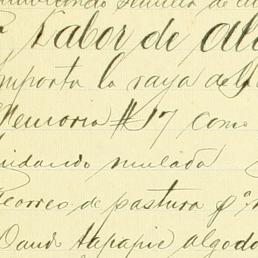 Labor de al
importa la raya del
Memoria #17 como
cuidando mulada
Acarreo de pastura pª
Dand tapapie algodo